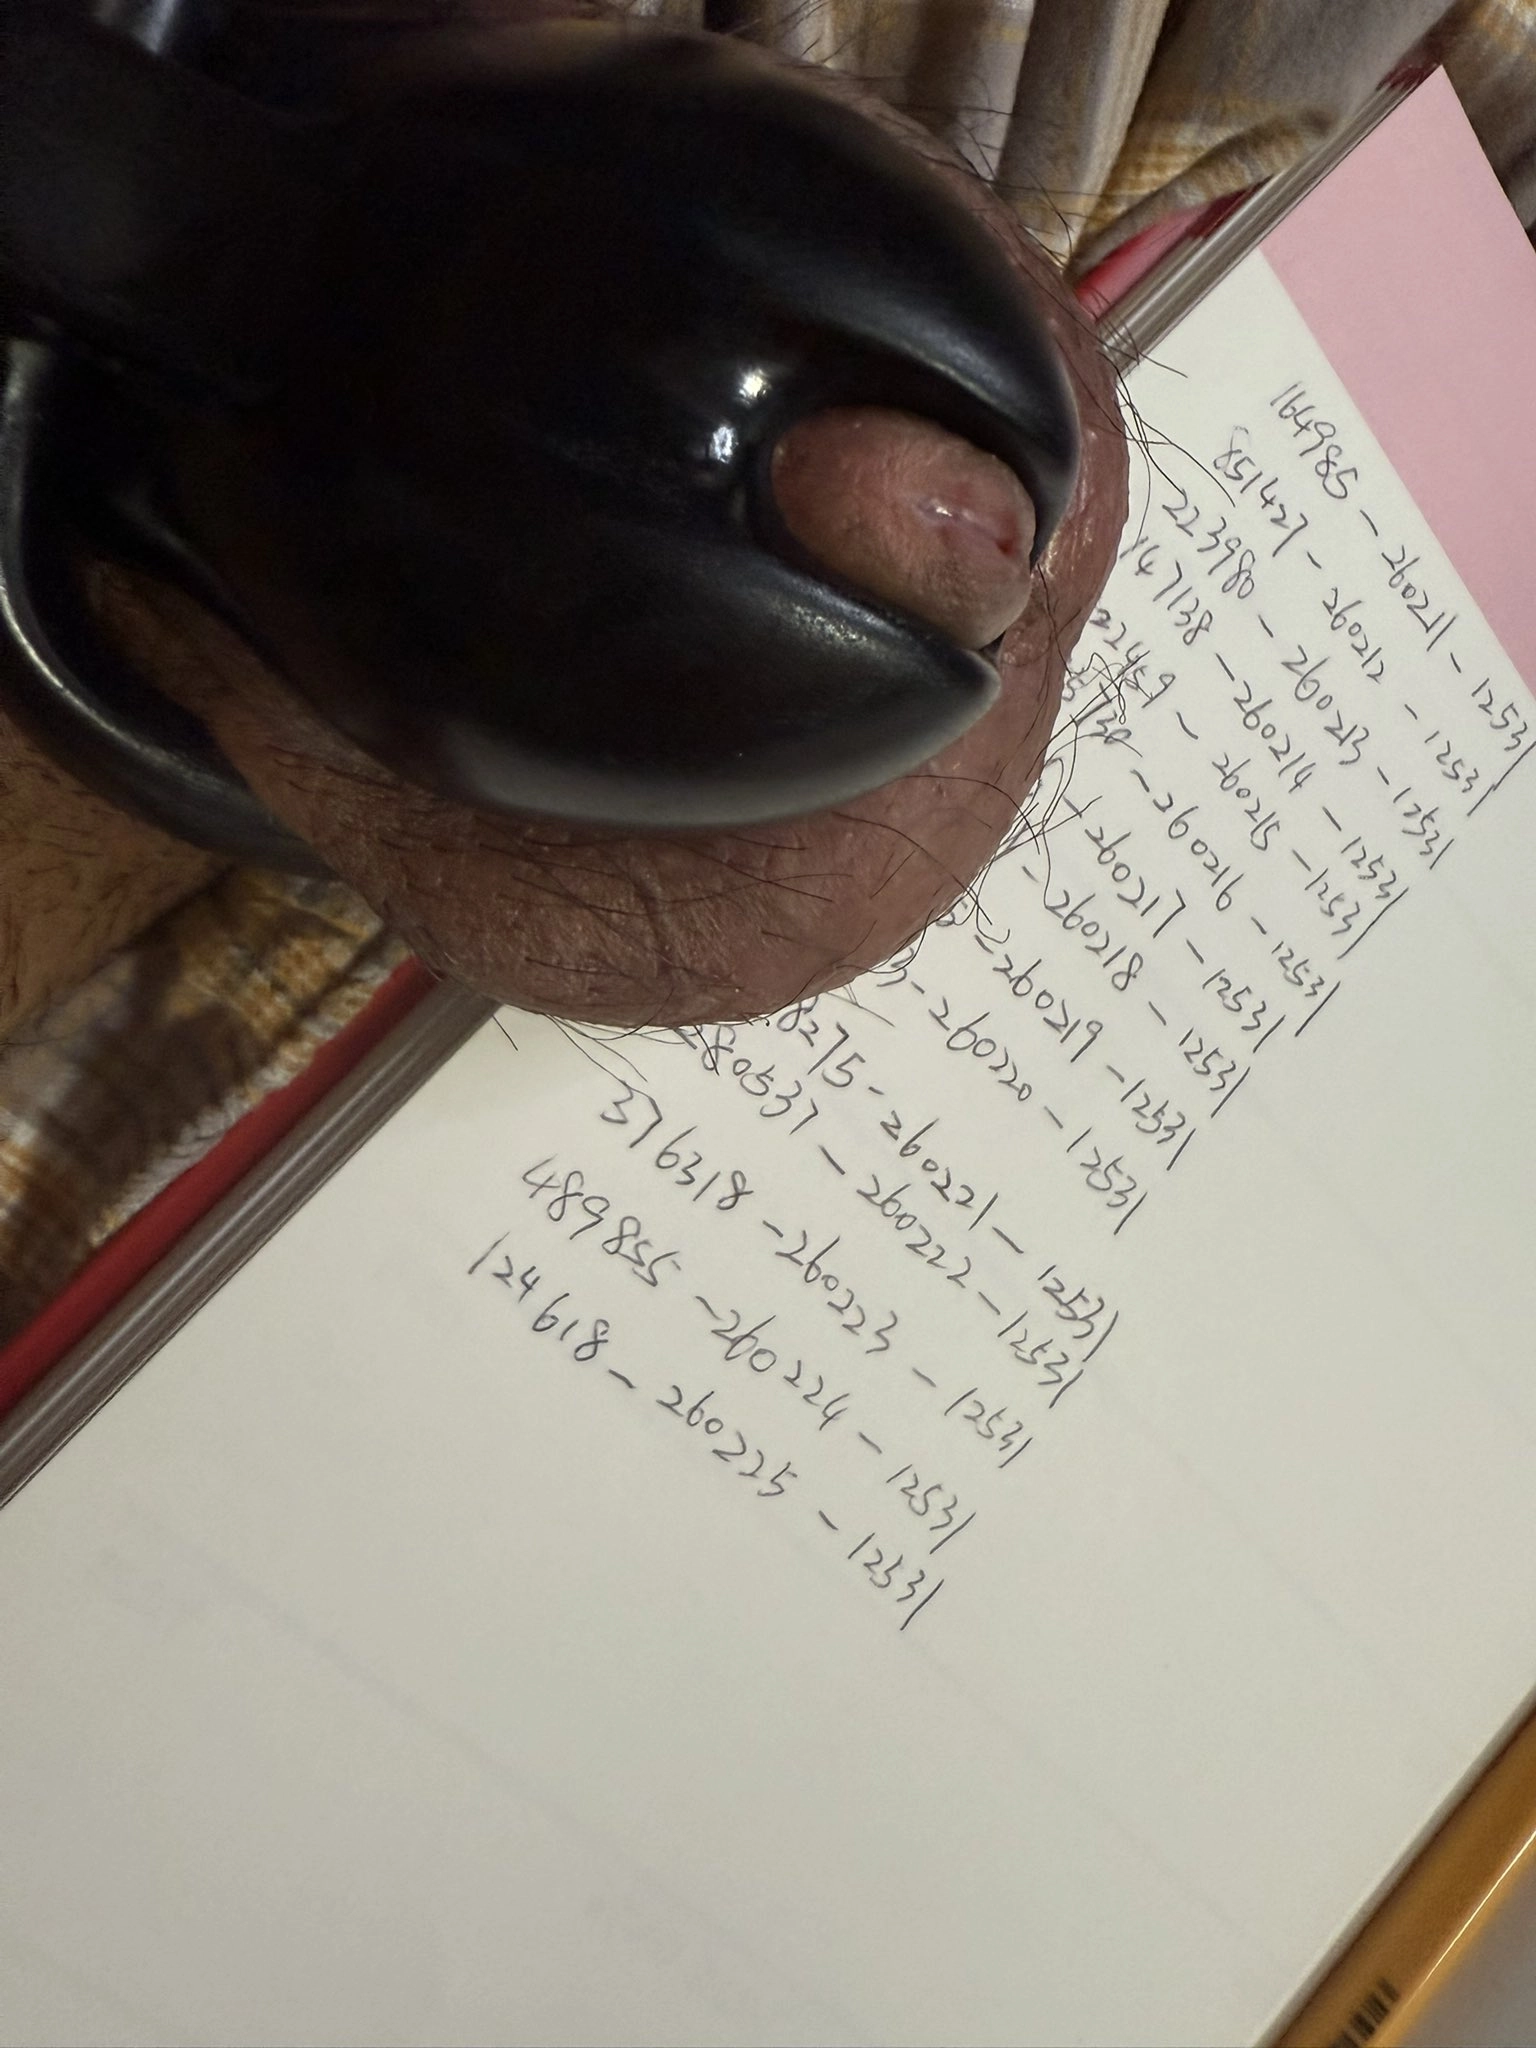 164985 - 260211 - 12531
851427 - 260212 - 12531
223980 - 260213 - 12531
147138 - 260214 - 12531
22459 - 260215 - 12531
5730 - 260216 - 12531
- 260217 - 12531
- 260218 - 12531
- 260219 - 12531
3 - 260220 - 12531
8275 - 260221 - 12531
280537 - 260222 - 12531
376318 - 260223 - 12531
489855 - 260224 - 12531
124618 - 260225 - 12531